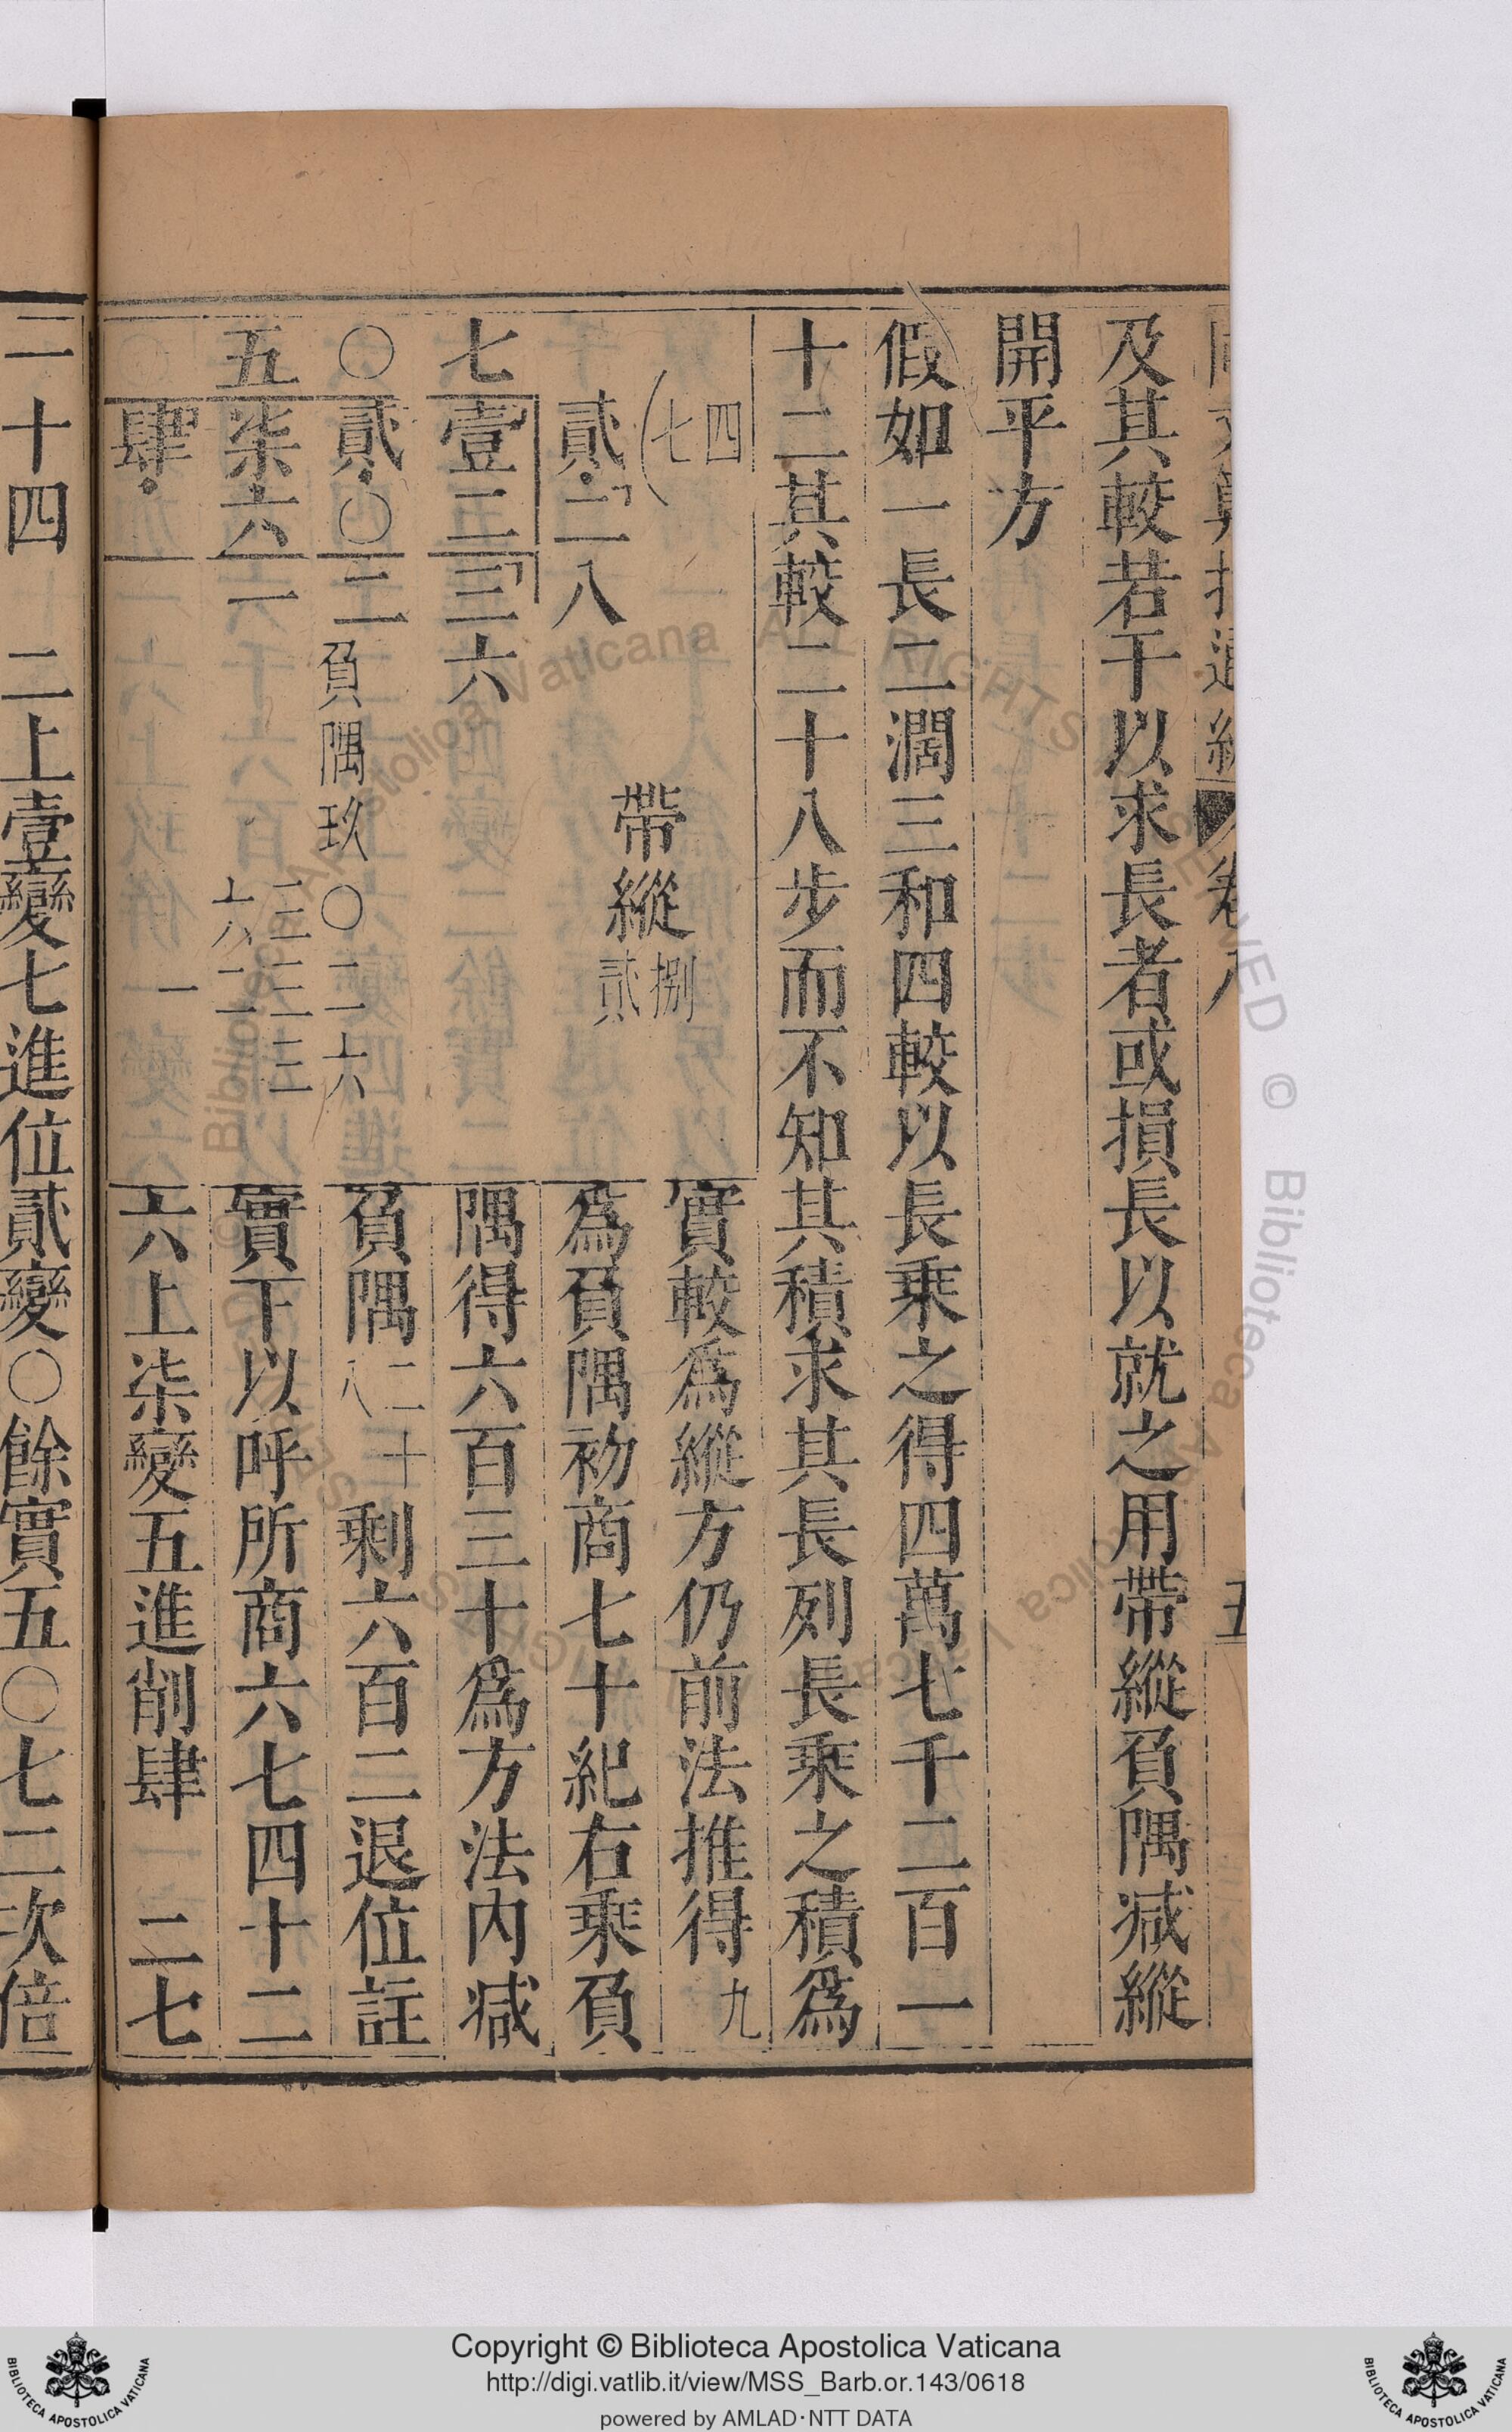 及其較若干以求長者或損長以就之用帶縱負隅減縱
開平方
假如一長二濶三和四較以長乘之得四萬七千二百一
十二其較二十八步而不知其積求其長列長乘之積爲
四
七
帶縱
捌
貳
實較爲縱方仍前法推得九
貳二八
爲負隅初商七十紀右乘負
七壹二三六
隅得六百三十爲方法內減
〇貳〇二
負隅玖
〇二一六
負隅二十八剩六百二退位註
五柒六一
實下以呼所商六七四十二
肆一
六上柒變五進削肆 二七
二十四 二上壹變七進位貳變〇餘實五〇七二次倍
Copyright © Biblioteca Apostolica Vaticana
http://digi.vatlib.it/view/MSS_Barb.or.143/0618
powered by AMLAD·NTT DATA
BIBLIOTECA APOSTOLICA VATICANA
BIBLIOTECA APOSTOLICA VATICANA